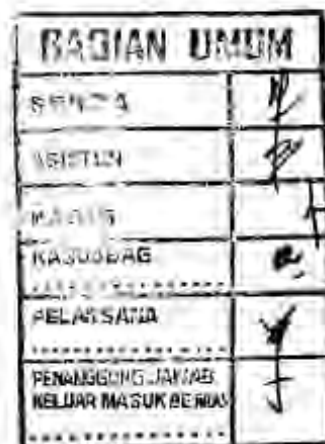 BAGIAN UMUM
SEKDA
ASISTEN
KABAG
KASUBBAG
PELAKSANA
PENANGGUNG JAWAB
KELUAR MASUK BERKAS